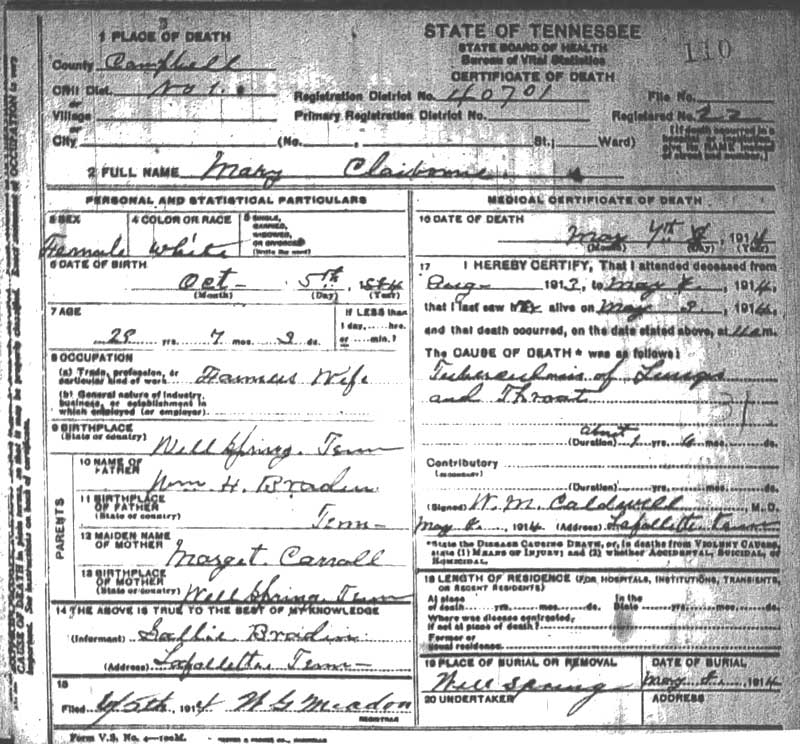 STATE OF TENNESSEE
STATE BOARD OF HEALTH
Bureau of Vital Statistics
CERTIFICATE OF DEATH
110
1 PLACE OF DEATH
County Campbell
Civil Dist. No 1.
or
Village
or
City (No. , St.; Ward)
Registration District No. 40701 File No.
Primary Registration District No. Registered No. 22
2 FULL NAME Mary Claiborne
PERSONAL AND STATISTICAL PARTICULARS
3 SEX Female
4 COLOR OR RACE White
5 SINGLE, MARRIED, WIDOWED, OR DIVORCED (Write the word)
6 DATE OF BIRTH
Oct 5th
(Month) (Day) (Year)
7 AGE
29 yrs. 7 mos. 3 ds.
If LESS than
1 day, hrs.
or min.?
8 OCCUPATION
(a) Trade, profession, or
particular kind of work Farmers Wife
(b) General nature of industry,
business, or establishment in
which employed (or employer)
9 BIRTHPLACE
(State or country) Well Spring. Tenn
PARENTS
10 NAME OF
FATHER Wm H. Braden
11 BIRTHPLACE
OF FATHER
(State or country) Tenn
12 MAIDEN NAME
OF MOTHER Marget. Carroll
13 BIRTHPLACE
OF MOTHER
(State or country) Well Spring. Tenn
14 THE ABOVE IS TRUE TO THE BEST OF MY KNOWLEDGE
(Informant) Sallie Braden
(Address) Lafollette Tenn
15
Filed 1914
REGISTRAR
Form V.S. No. 4—100M.
MEDICAL CERTIFICATE OF DEATH
16 DATE OF DEATH
May , 1914
(Month) (Day) (Year)
17 I HEREBY CERTIFY, That I attended deceased from
Aug 191 , to May 8, 1914,
that I last saw her alive on May 3, 1914,
and that death occurred, on the date stated above, at m.
The CAUSE OF DEATH* was as follows:
Tuberculosis of Lungs
and Throat
31
about
(Duration) 1 yrs. 6 mos. ds.
Contributory
(SECONDARY)
(Duration) yrs. mos. ds.
(Signed) W. M. Caldwell M.D.
May 8, 1914 (Address) Lafollette Tenn
*State the DISEASE CAUSING DEATH, or, in deaths from VIOLENT CAUSES,
state (1) MEANS OF INJURY; and (2) whether ACCIDENTAL, SUICIDAL, or
HOMICIDAL.
18 LENGTH OF RESIDENCE (FOR HOSPITALS, INSTITUTIONS, TRANSIENTS,
OR RECENT RESIDENTS)
At place
of death yrs. mos. ds.
In the
State yrs. mos. ds.
Where was disease contracted,
if not at place of death?
Former or
usual residence
19 PLACE OF BURIAL OR REMOVAL
Well Spring
DATE OF BURIAL
May 8, 1914
20 UNDERTAKER
ADDRESS